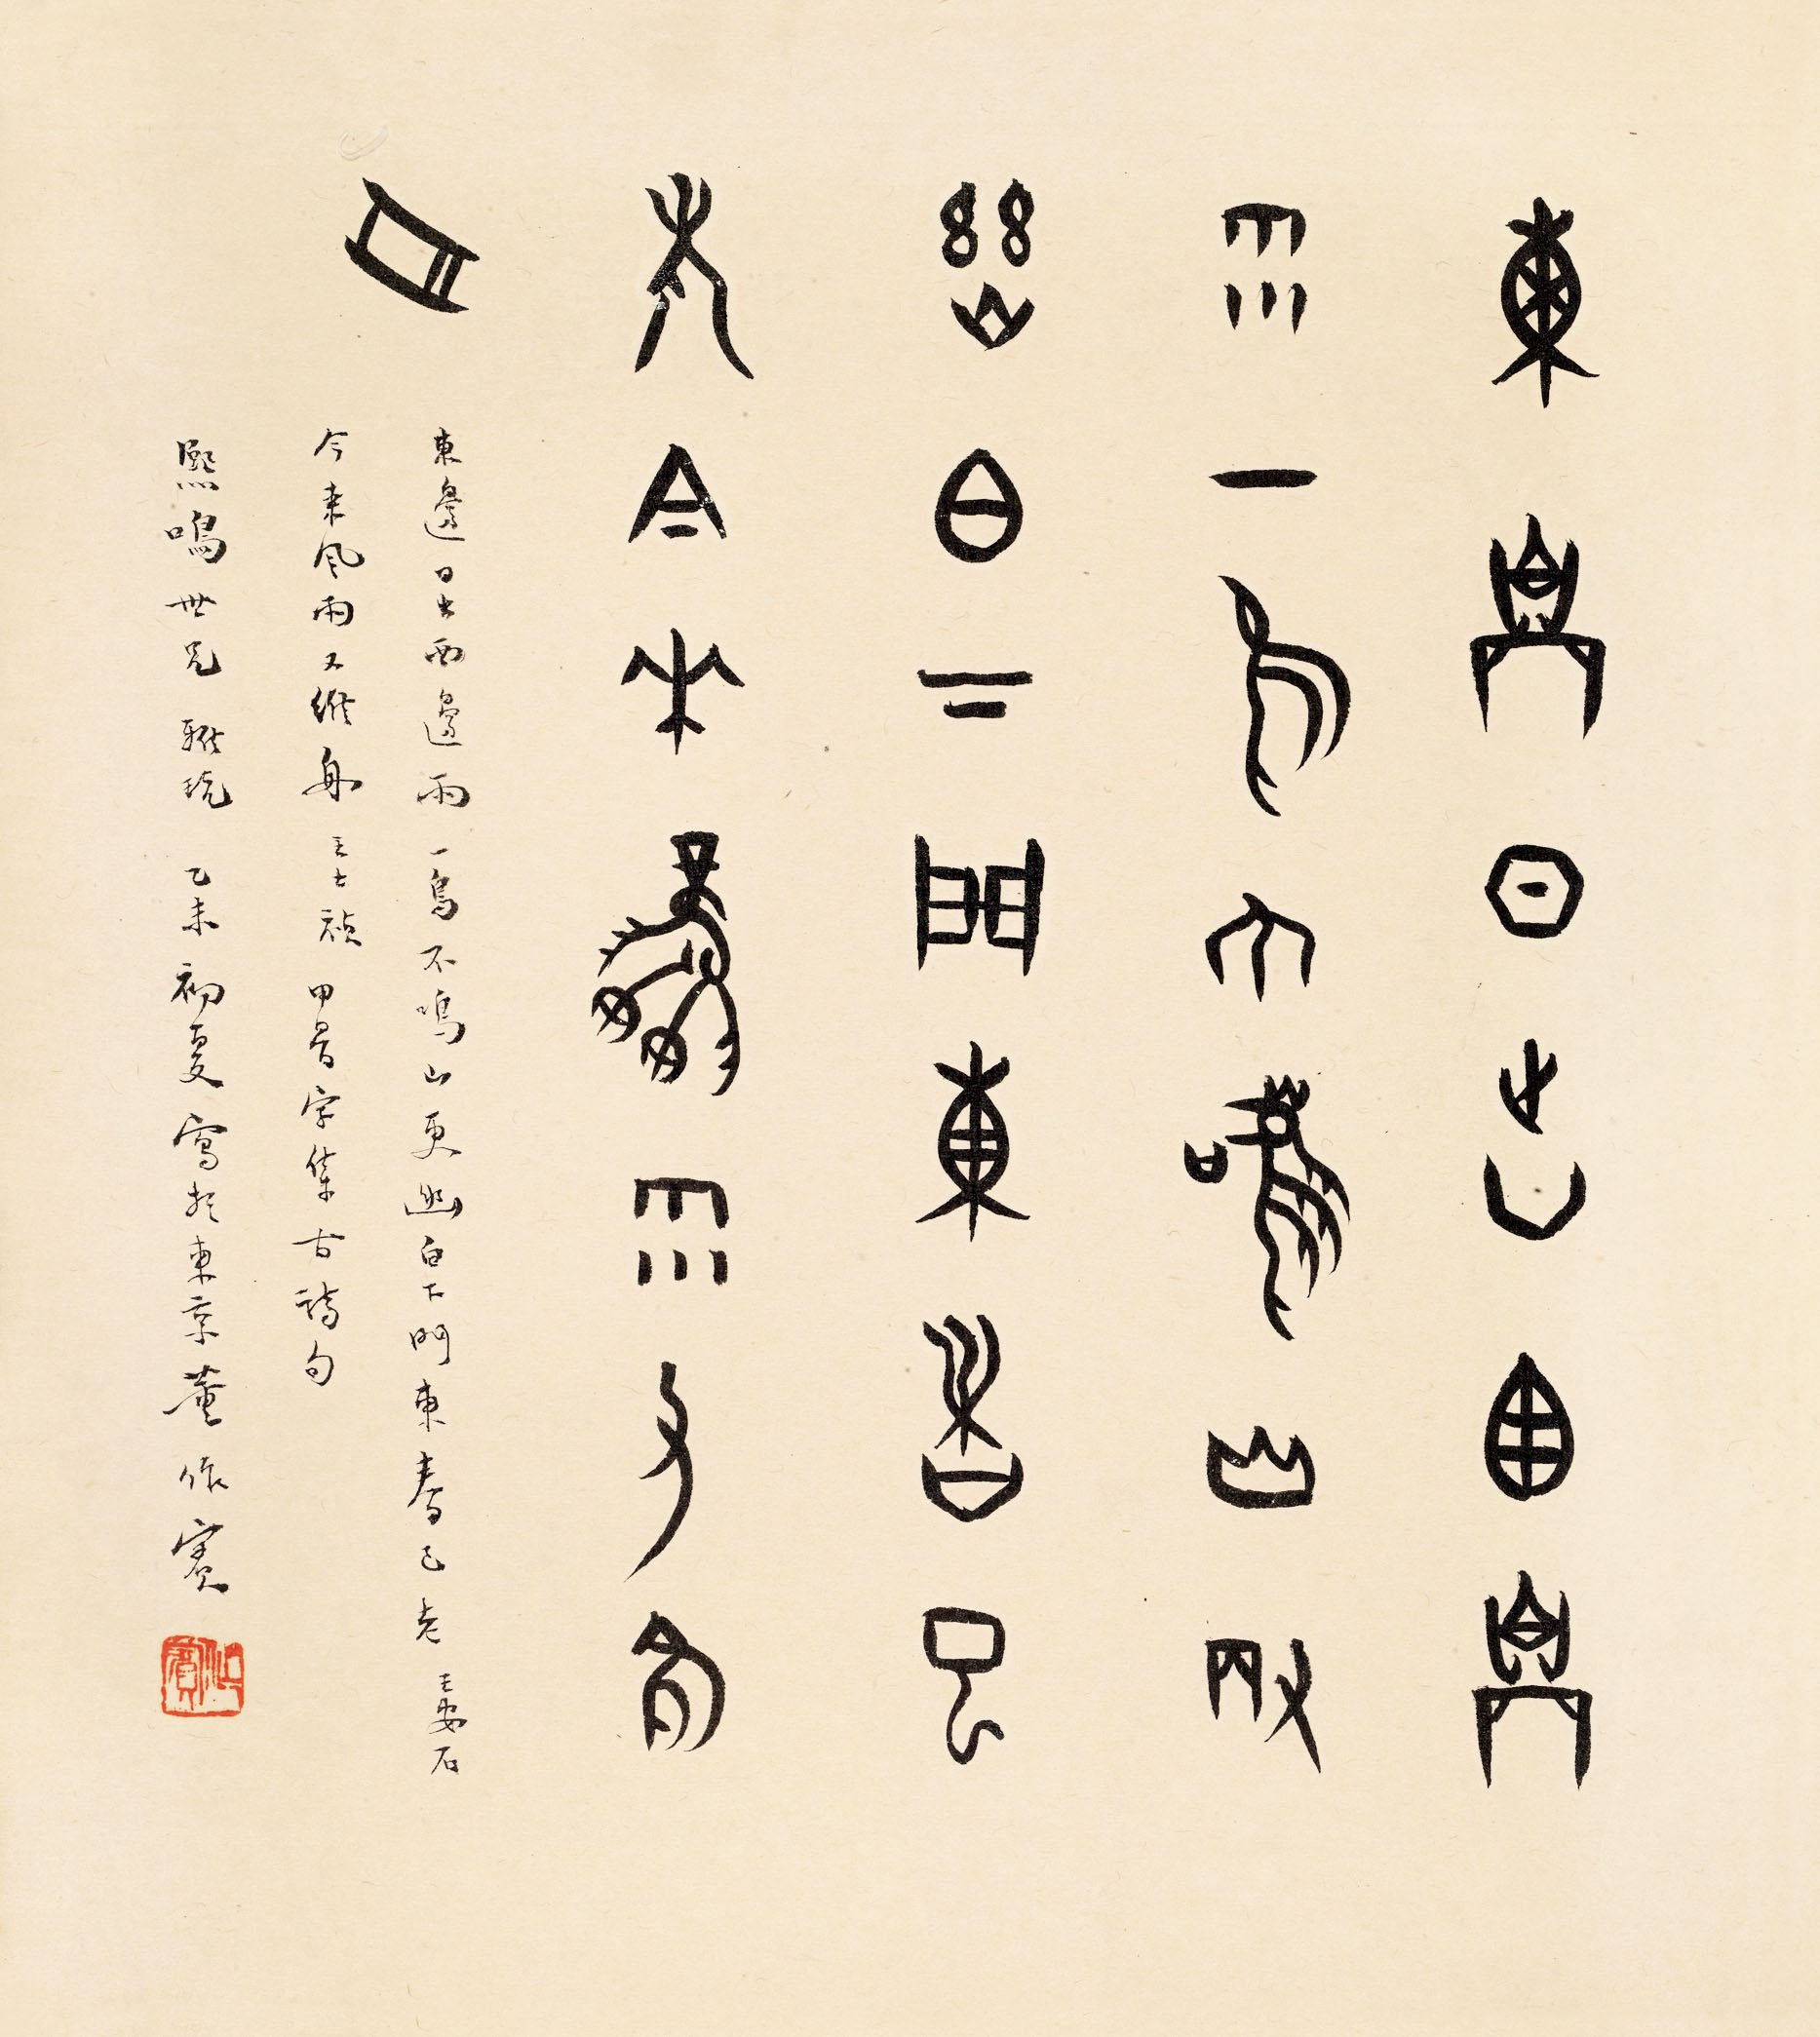 東邊日出西邊
雨一鳥不鳴山更
幽白下門東春已
老今來風雨又維
舟
東邊日出西邊雨一鳥不鳴山更幽白下門東春已老 王安石
今來風雨又維舟 王士禎 甲骨字集古詩句
熙鳴世兄 雅玩 乙未初夏寫於東京董作賓
作賓